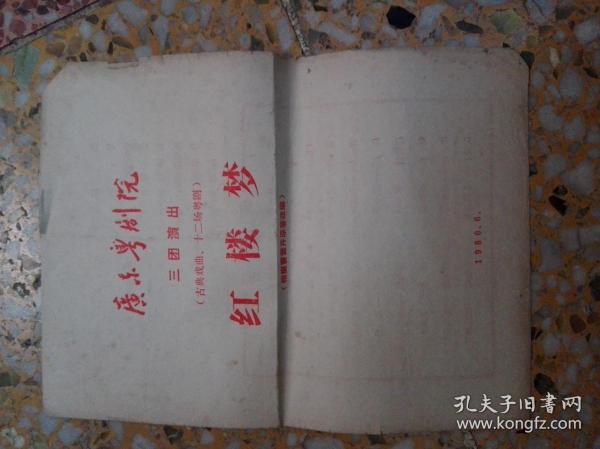 廣东粤剧院
三团演出
（古典戏曲、十二场粤剧）
红楼梦
1980.6.
孔夫子旧書网
www.kongfz.com